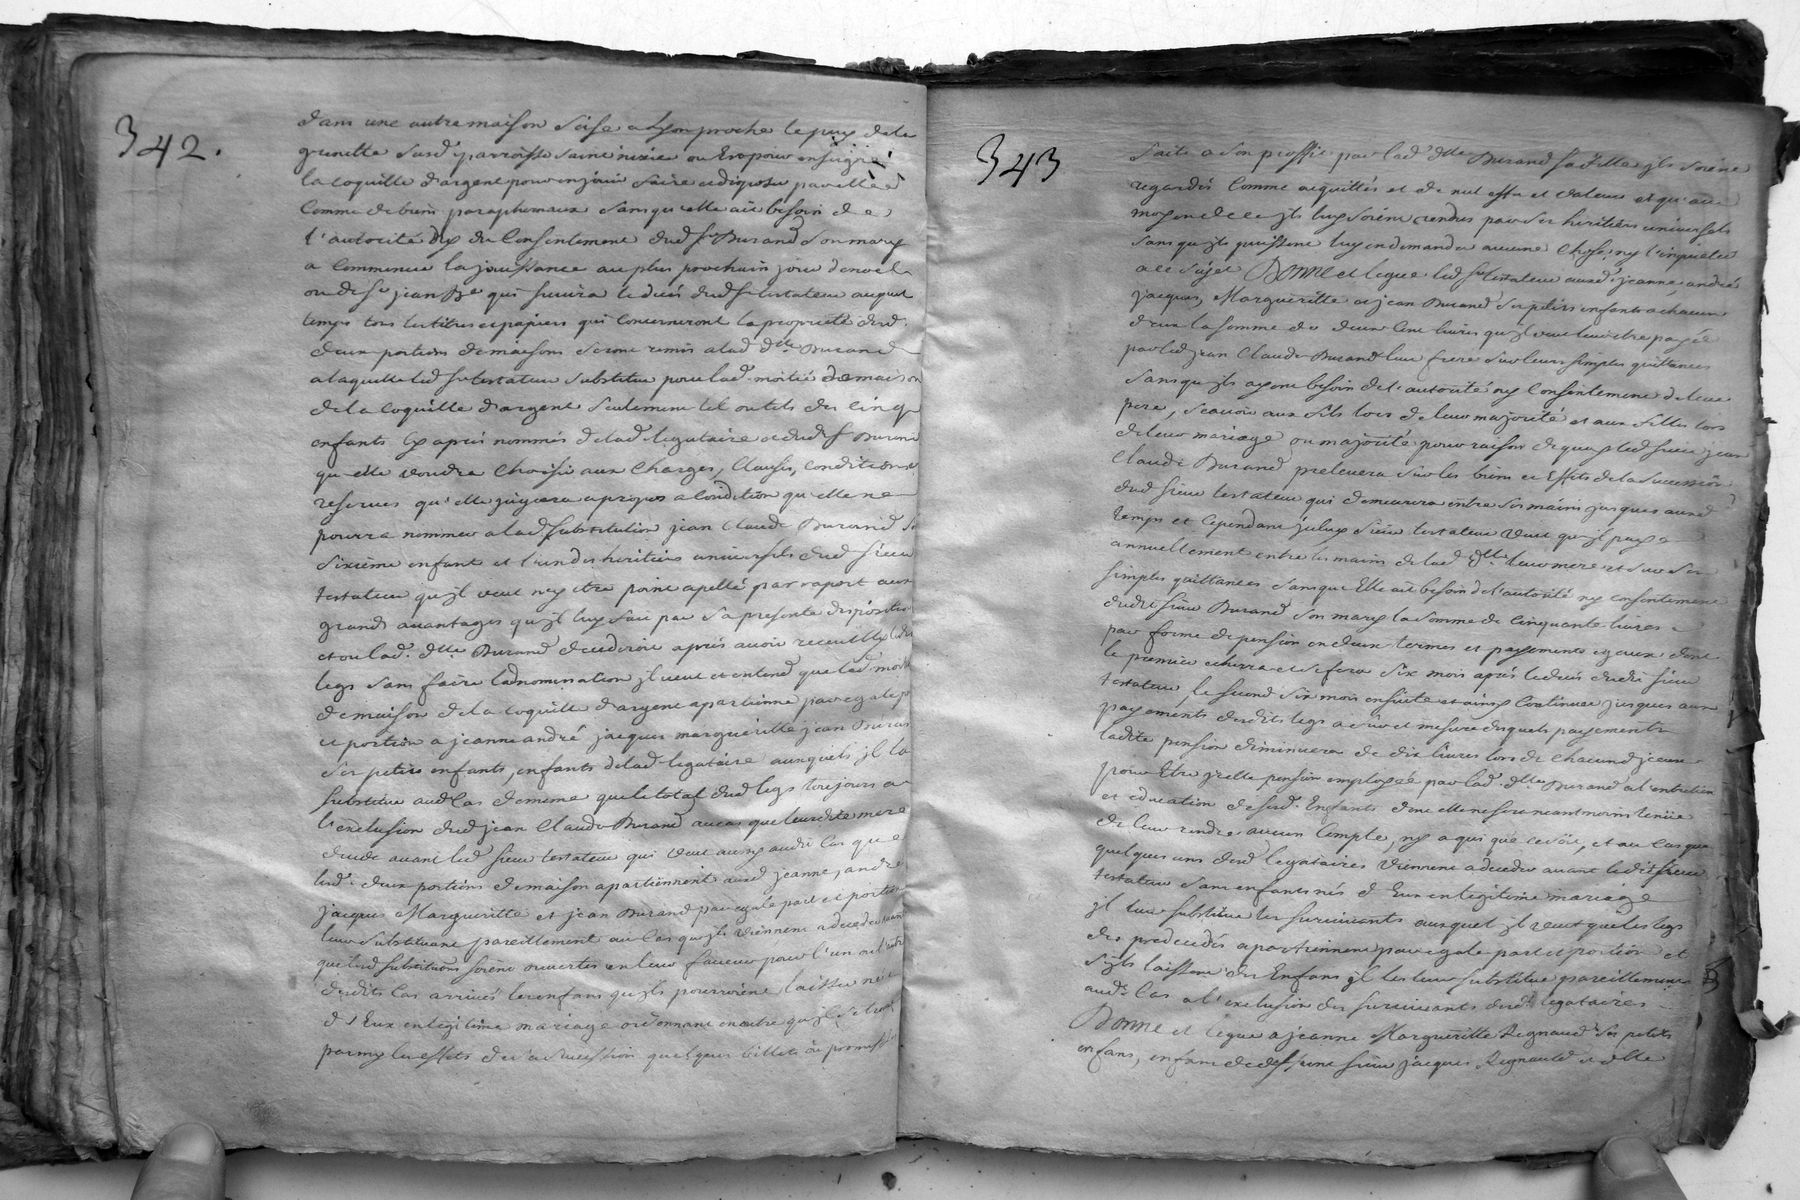 342.
dans une autre maison scise a Lyon proche le puy de la
grenette susd. parroisse saint nizier ou Est pour enseigne
la coquille d'argent pour en jouir faire et disposer par elle
comme de biens paraphernaux sans qu'elle ait besoin de
l'autorité ny du Consentement dud. sr Durand son mary
a commencer la jouissance au plus prochain jour de noel
ou de st jean Bte qui suivra le deces dud. sr testateur auquel
temps tous les titres et papiers qui concerneront la propriété desd.
deux portions de maisons seront remis a lad. dlle Durand
a laquelle led. sr testateur substitue pour lad. moitié de maison
de la coquille d'argent seulement tel ou tels des cinq
enfants cy apres nommés de lad. legataire et dud. sr Durand
qu'elle voudra choisir aux charges, clauses, conditions
reserves qu'elle jugera a propos a condition qu'elle ne
pourra nommer a lad. substitution jean Claude Durand
sixième enfant et l'un des heritiers universels dud. sieur
testateur qu'jl veut n'y être point apellé par raport aux
grands avantages qu'jl luy fait par sa presente disposition
et ou lad. dlle Durand decederoit aprés avoir recueilly led.
legs sans faire lad. nomination jl veut et entend que lad. moitié
de maison de la coquille d'argent apartienne par egale part
et portion a jeanne andré jacques margueritte jean Durand
ses petits enfants, enfants de lad. legataire auxquels jl la
substitue aud. cas de meme que le total dud. legs toujours a
l'exclusion dud. jean Claude Durand au cas que leurdite mere
decede avant led. sieur testateur qui veut aussy audit cas que
lesd. deux portions de maison apartiennent auxd. jeanne, andré
jacques Margueritte et jean Durand par egale part et portion
leur substituant pareillement au cas qu'jls viennent a deceder avant
que lesd. substitutions soient ouvertes en leur faveur pour l'un ou l'autre
desdits cas arrivés les enfans qu'jls pourroient laisser nés
d'Eux en legitime mariage ordonnant en outre qu'jl se trouve
parmy les effets de sa succession quelques billets ou promesses
343
faits a son proffit par lad. dlle Durand sa fille jls soient
regardés comme acquittés et de nul effet et valeur et qu'au
moyen de ce jls luy soient rendus par ses heritiers universels
sans qu'jls puissent luy en demander aucune chose, ny l'inquieter
a ce sujet Donne et legue led. sr testateur auxd. jeanne, andré
jacques, Margueritte et jean Durand ses petits enfants a chacun
d'eux la somme de deux cent livres qu'jl veut leur être payée
par led. jean Claude Durand leur frere sur leurs simples quittances
sans qu'jls ayent besoin de l'autorité ny consentement de leur
pere, scavoir aux fils lors de leur majorité et aux filles lors
de leur mariage ou majorité pour raison de quoy led. sieur jean
Claude Durand prelevera sur les biens et Effets de la succession
dud. sieur testateur qui demeurera entre ses mains jusques aud.
temps et cependant sieur testateur veut qu'jl paye
annuellement entre les mains de lad. dlle leur mere et sur ses
simples quittances sans que Elle ait besoin de l'autorité ny consentement
dudit sieur Durand son mary la somme de cinquante livres
par forme de pension en deux termes et payements egaux dont
le premier echerra et se fera six mois aprés le deces dudit sieur
testateur, le second six mois ensuite et ainsy continuer jusques aux
payements desdits legs a fur et mesure desquels payements
ladite pension diminuera de dix livres lors de chacun d'jceux
pour Etre jcelle pension employée par lad. dlle Durand a l'entretien
et education de sesd. Enfants dont elle ne sera neantmoins tenüe
de leur rendre aucun compte, ny a qui que ce soit, et au cas que
quelques uns desd. legataires viennent a deceder avant ledit sieur
testateur sans enfants nés d'Eux en legitime mariage
jl leur substitue les survivants auxquels jl veut que les legs
des predecedés apartiennent par egale part et portion et
s'jls laissent des Enfans jl les leur substitue pareillement
aud. cas a l'exclusion des survivants desd. legataires
Donne et legue a jeanne Margueritte Regnaud ses petits
enfans, enfans de deffunt sieur jacques Regnauld et dlle